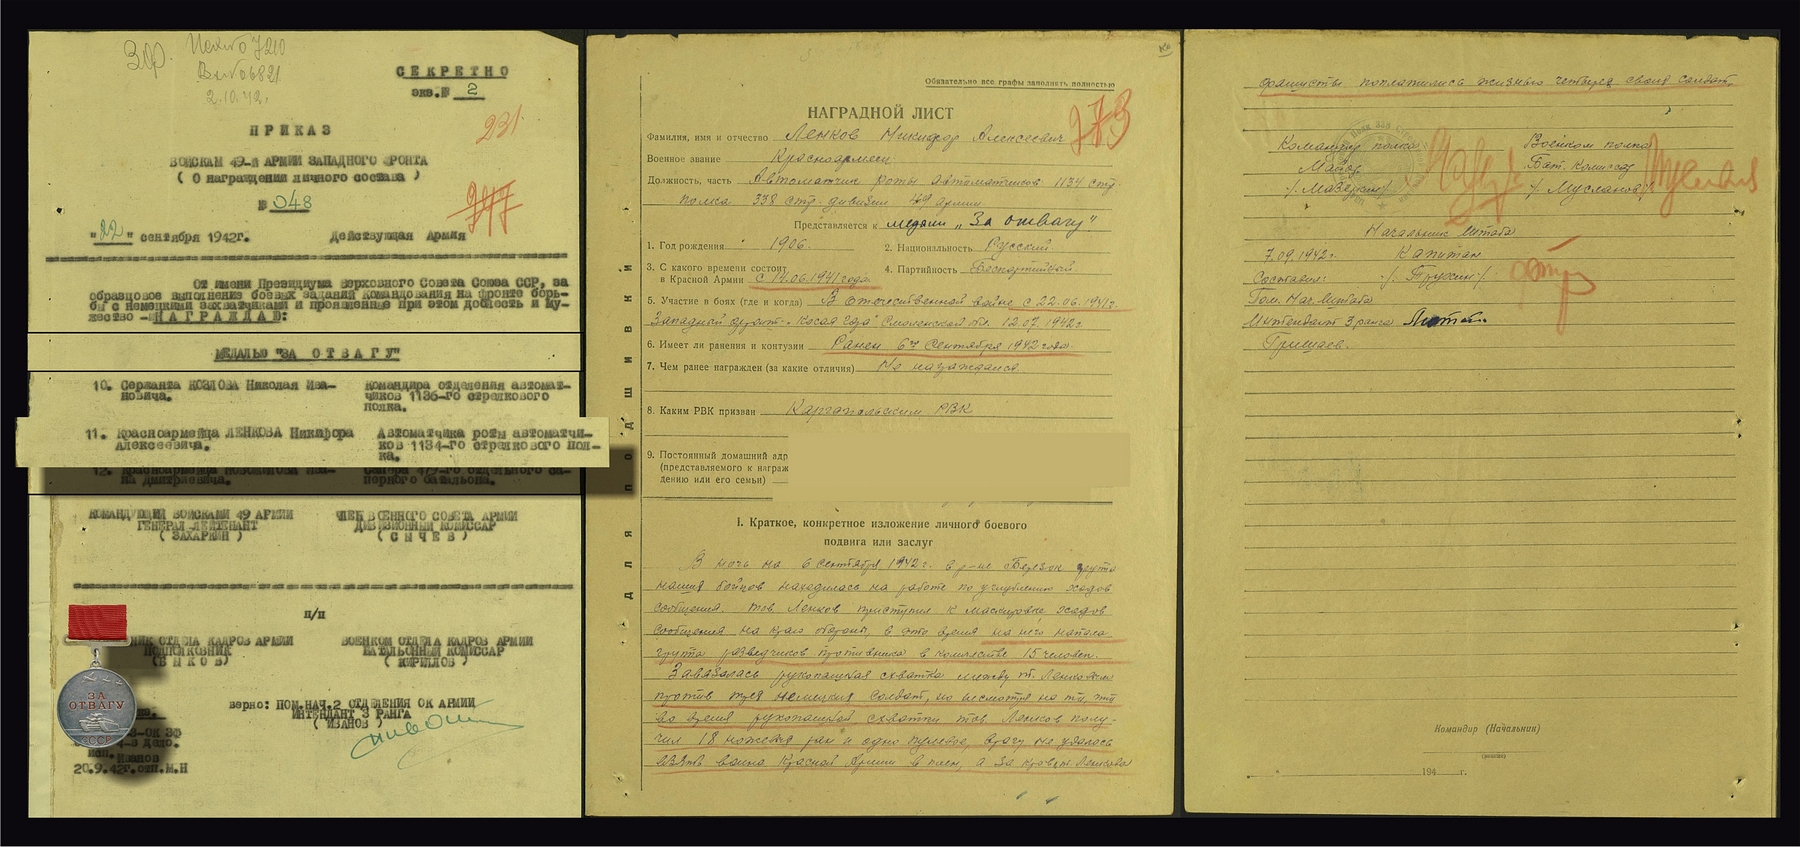 Исх№0 7210
Вх№06821
2.10.42.
СЕКРЕТНО
экз.№ 2
231
ПРИКАЗ
ВОЙСКАМ 49-й АРМИИ ЗАПАДНОГО ФРОНТА
( О награждении личного состава )
№ 048
"22" сентября 1942г. Действующая Армия
От имени Президиума Верховного Совета Союза ССР, за
образцовое выполнение боевых заданий командования на фронте борь-
бы с немецкими захватчиками и проявленные при этом доблесть и му-
жество - НАГРАЖДАЮ:
МЕДАЛЬЮ "ЗА ОТВАГУ"
10. Сержанта КОЗЛОВА Николая Ива- Командира отделения автомат-
новича. чиков 1136-го стрелкового
полка.
11. Красноармейца ЛЕНКОВА Никифора Автоматчика роты автоматчи-
Алексеевича. ков 1134-го стрелкового пол-
ка.
12. Красноармейца Ива- Сапера 479-го отдельного са-
на Дмитриевича. перного батальона.
КОМАНДУЮЩИЙ ВОЙСКАМИ 49 АРМИИ ЧЛЕН ВОЕННОГО СОВЕТА АРМИИ
ГЕНЕРАЛ ЛЕЙТЕНАНТ ДИВИЗИОННЫЙ КОМИССАР
( ЗАХАРКИН ) ( СЫЧЕВ )
п/п
НИК ОТДЕЛА КАДРОВ АРМИИ ВОЕНКОМ ОТДЕЛА КАДРОВ АРМИИ
ПОДПОЛКОВНИК БАТАЛЬОННЫЙ КОМИССАР
( БЫКОВ ) ( КИРИЛЛОВ )
верно: ПОМ.НАЧ.2 ОТДЕЛЕНИЯ ОК АРМИИ
ИНТЕНДАНТ 3 РАНГА
( ИВАНОВ )
ЗА
ОТВАГУ
СССР
-ОК ЗФ
в дело.
исп. Иванов
20.9.42г.отп.М.Н
ДЛЯ ПОДШИВКИ
Обязательно все графы заполнять полностью
НАГРАДНОЙ ЛИСТ
273
Фамилия, имя и отчество Ленков Никифор Алексеевич
Военное звание Красноармеец
Должность, часть Автоматчик роты автоматчиков 1134 стр.
полка 338 стр. дивизии 49 армии
Представляется к медали „За отвагу"
1. Год рождения 1906. 2. Национальность Русский
3. С какого времени состоит
в Красной Армии С 14.06.1941 года 4. Партийность Беспартийный
5. Участие в боях (где и когда) В отечественной войне с 22.06.1941г.
Западный фронт - "Косая Гора" Смоленской обл. 12.07.1942г.
6. Имеет ли ранения и контузии Ранен 6го Сентября 1942 года.
7. Чем ранее награжден (за какие отличия) Не награждался
8. Каким РВК призван Каргапольским РВК
9. Постоянный домашний адр
(представляемого к награж
дению или его семьи)
I. Краткое, конкретное изложение личного боевого
подвига или заслуг
В ночь на 6 сентября 1942 г. в р-не Березок группа
наших бойцов находилась на работе по углублению ходов
сообщения. тов. Ленков приступил к маскировке ходов
сообщения на краю обороны, в это время на него напала
группа разведчиков противника в количестве 15 человек.
Завязалась рукопашная схватка между т. Ленковым
против трех немецких солдат, но несмотря на то, что
во время рукопашной схватки тов. Ленков полу-
чил 18 ножевых ран и одно пулевое, врагу не удалось
взять воина Красной Армии в плен, а за кровь т. Ленкова
фашисты поплатились жизнью четырех своих солдат.
Командир полка Военком полка
Майор Бат. Комиссар
/ Мазеркин / / Мусланов /
Начальник Штаба
7.09.1942г. Капитан
Составил: /. Пружин /.
Пом. Нач. Штаба
Интендант 3 ранга
Гришаев.
Командир (Начальник)
194 г.